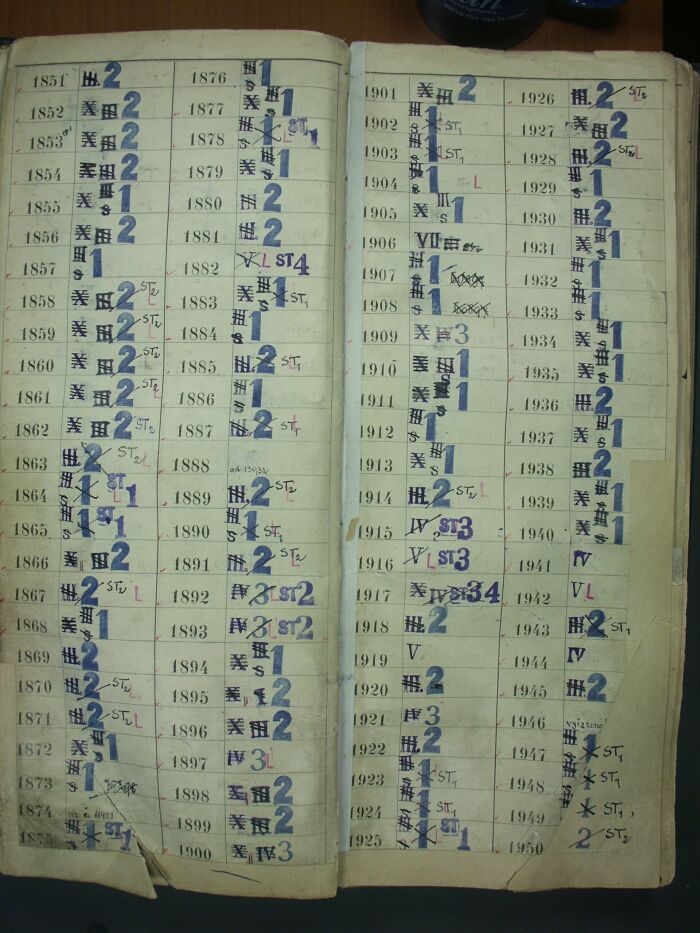 1851 III. 2
1852 X III 2
1853 X III 2
1854 X III 2
1855 X III S 1
1856 X III 2
1857 III S 1
1858 X III 2 ST2 L
1859 X III 2 ST2 L
1860 X III 2 ST2
1861 X III 2 ST2 L
1862 X III 2 ST2
1863 III. 2 ST2 L
1864 III S 1 ST 1 L
1865 III S 1 ST 1
1866 X III 2
1867 III. 2 ST2 L
1868 X III S 1
1869 III. 2
1870 III. 2 ST2 L
1871 III. 2 ST2 L
1872 X III S 1
1873 III S 1
1874
1875 III S 1 ST 1
1876 III S 1
1877 X III S 1
1878 III S 1 ST 1 L
1879 X III S 1
1880 III 2
1881 III. 2
1882 V L ST 4
1883 X III S 1 ST1
1884 III S 1
1885 III. 2 ST1 L
1886 III S 1
1887 III. 2 ST1 L
1888
1889 III. 2 ST2 L
1890 III S 1 ST1 L
1891 III. 2 ST2 L
1892 IV 3 L ST 2
1893 IV 3 L ST 2
1894 X III S 1
1895 X 1 2
1896 X III 2
1897 IV 3 L
1898 X III 2
1899 X III 2
1900 X IV 3
1901 X III 2
1902 III S 1 ST1
1903 III S 1 ST1
1904 III S 1 L
1905 X III S 1
1906 VII
1907 III S 1
1908 III S 1
1909 X IV 3
1910 X III S 1
1911 X III S 1
1912 III S 1
1913 X III S 1
1914 III. 2 ST2 L
1915 IV ST 3
1916 V L ST 3
1917 X IV ST 3 4
1918 III. 2
1919 V.
1920 III. 2
1921 IV 3
1922 III. 2
1923 III S 1 ST1
1924 III S 1 ST1
1925 III S 1 ST 1 L
1926 III. 2 ST2 L
1927 X III 2
1928 III. 2 ST2 L
1929 III S 1
1930 III. 2
1931 X III S 1
1932 III S 1
1933 III S 1
1934 X III S 1
1935 X III S 1
1936 III. 2
1937 X III S 1
1938 III 2
1939 X III S 1
1940 X III S 1
1941 IV
1942 V L
1943 III. 2 ST1
1944 IV
1945 III. 2
1946
1947 III S 1 ST1
1948 III S 1 ST1
1949 1 ST1
1950 2 ST2